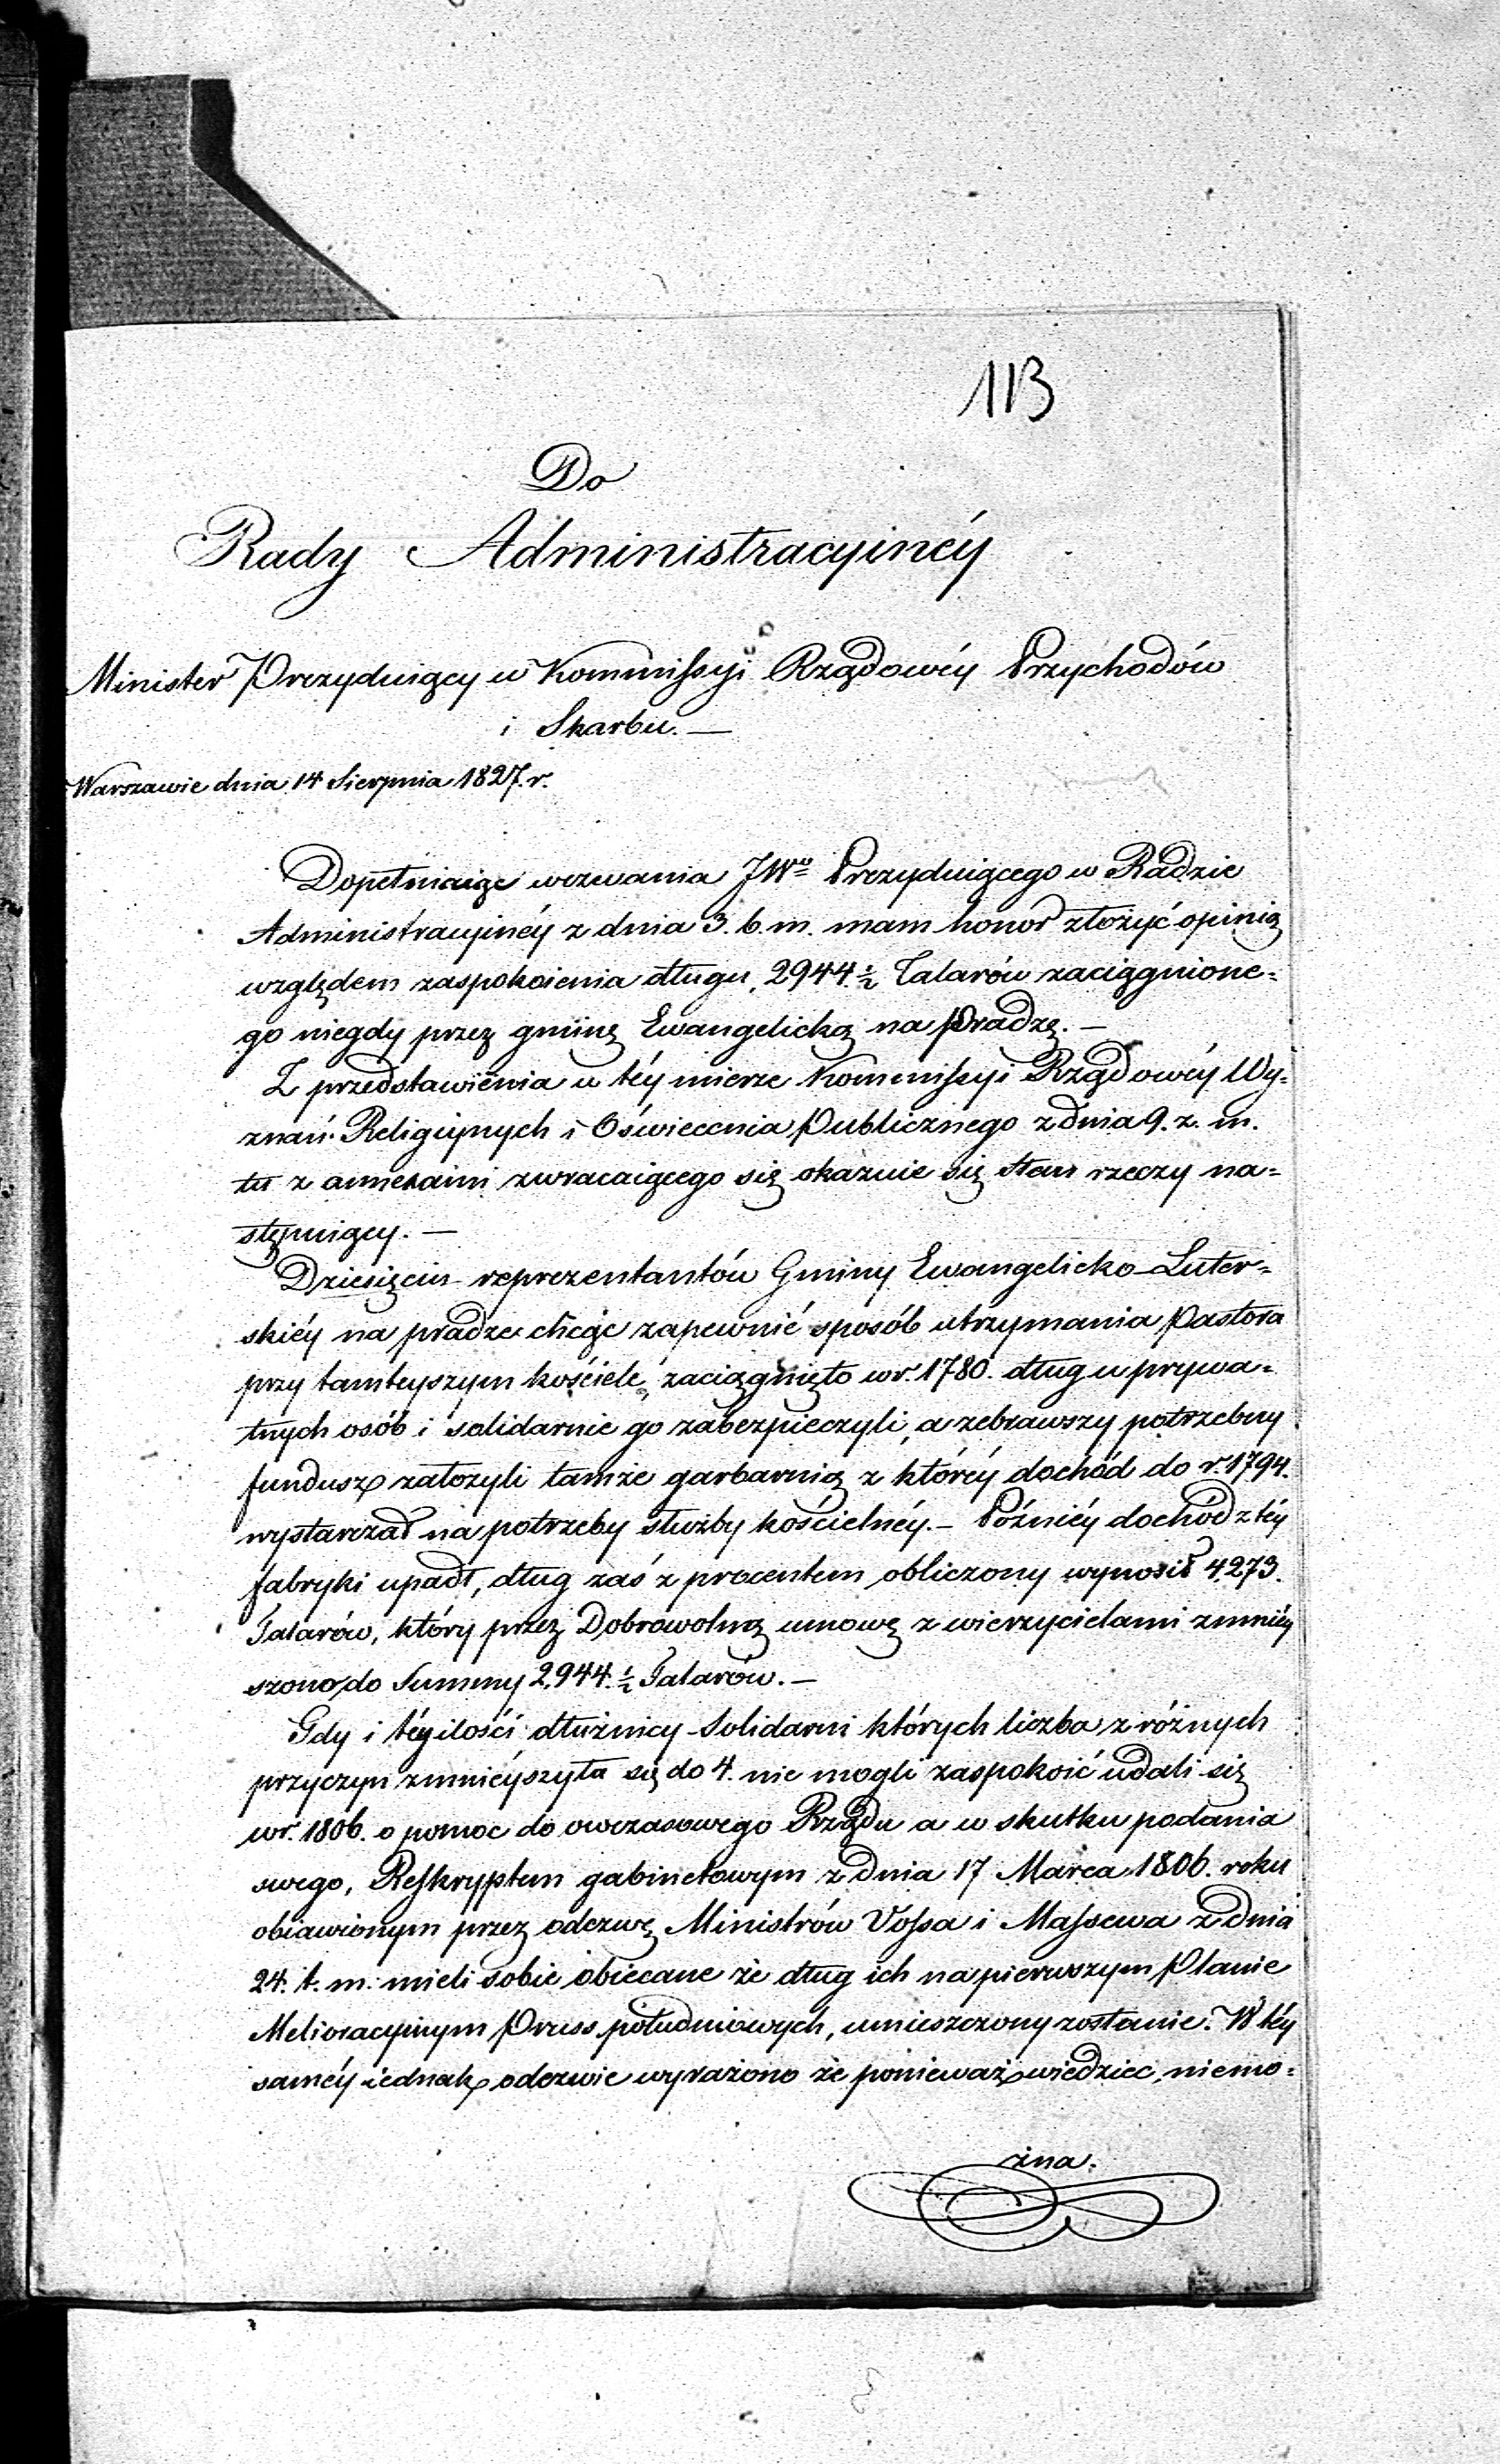 113
Do
Rady Administracyinéy
Minister Prezyduiący w Kommissyi Rządowéy Przychodów
i Skarbu. —
Warszawie dnia 14 Sierpnia 1827. r.
Dopełniaiąc wezwania JWo Prezyduiącego w Radzie
Administracyinéy z dnia 3. b. m. mam honor złożyć opinią
względem zaspokoienia długu, 2944. ½ Talarów zaciągnione=
go niegdy przez gminę Ewangelicką na Pradze. —
Z przedstawienia w téy mierze Kommissyi Rządowéy Wy=
znań Religiynych i Oświecenia Publicznego z dnia 9. z. m.
tu z annexami zwracaiącego się okazuie się stan rzeczy na=
stępuiący. —
Dziesięciu reprezentantów Gminy Ewangelicko-Luter=
skiéy na pradze chcąc zapewnić sposób utrzymania Pastora
przy tamteyszym kościele, zaciągnięto w r. 1780. dług u prywa=
tnych osób i solidarnie go zabezpieczyli, a zebrawszy potrzebny
fundusz założyli tamże garbarnią z któréy dochód do r. 1794.
wystarczał na potrzeby służby kościelnéy. — Późniéy dochód z téy
fabryki upadł, dług zaś z procentem obliczony wynosił 4,273.
Talarów, który przez Dobrowolną umowę z wierzycielami zmniéy
szono do Summy 2,944. ½ Talarów. —
Gdy i téy ilości dłużnicy Solidarni których liczba z różnych
przyczyn zmnieyszyła się do 4. nie mogli zaspokoić udali się
w r. 1806. o pomoc do owczasowego Rządu a w skutku podania
swego, Reskryptem gabinetowym z dnia 17 Marca 1806. roku
obiawionym przez odezwę Ministrów Vossa i Massewa z dnia
24. t. m. mieli sobie obiecane że dług ich na pierwszym Planie
Melioracyinym Pruss południowych, umieszczony zostanie. W téy
saméy iednak odezwie wyrażono że ponieważ wiedzieć, niemo=
żna.